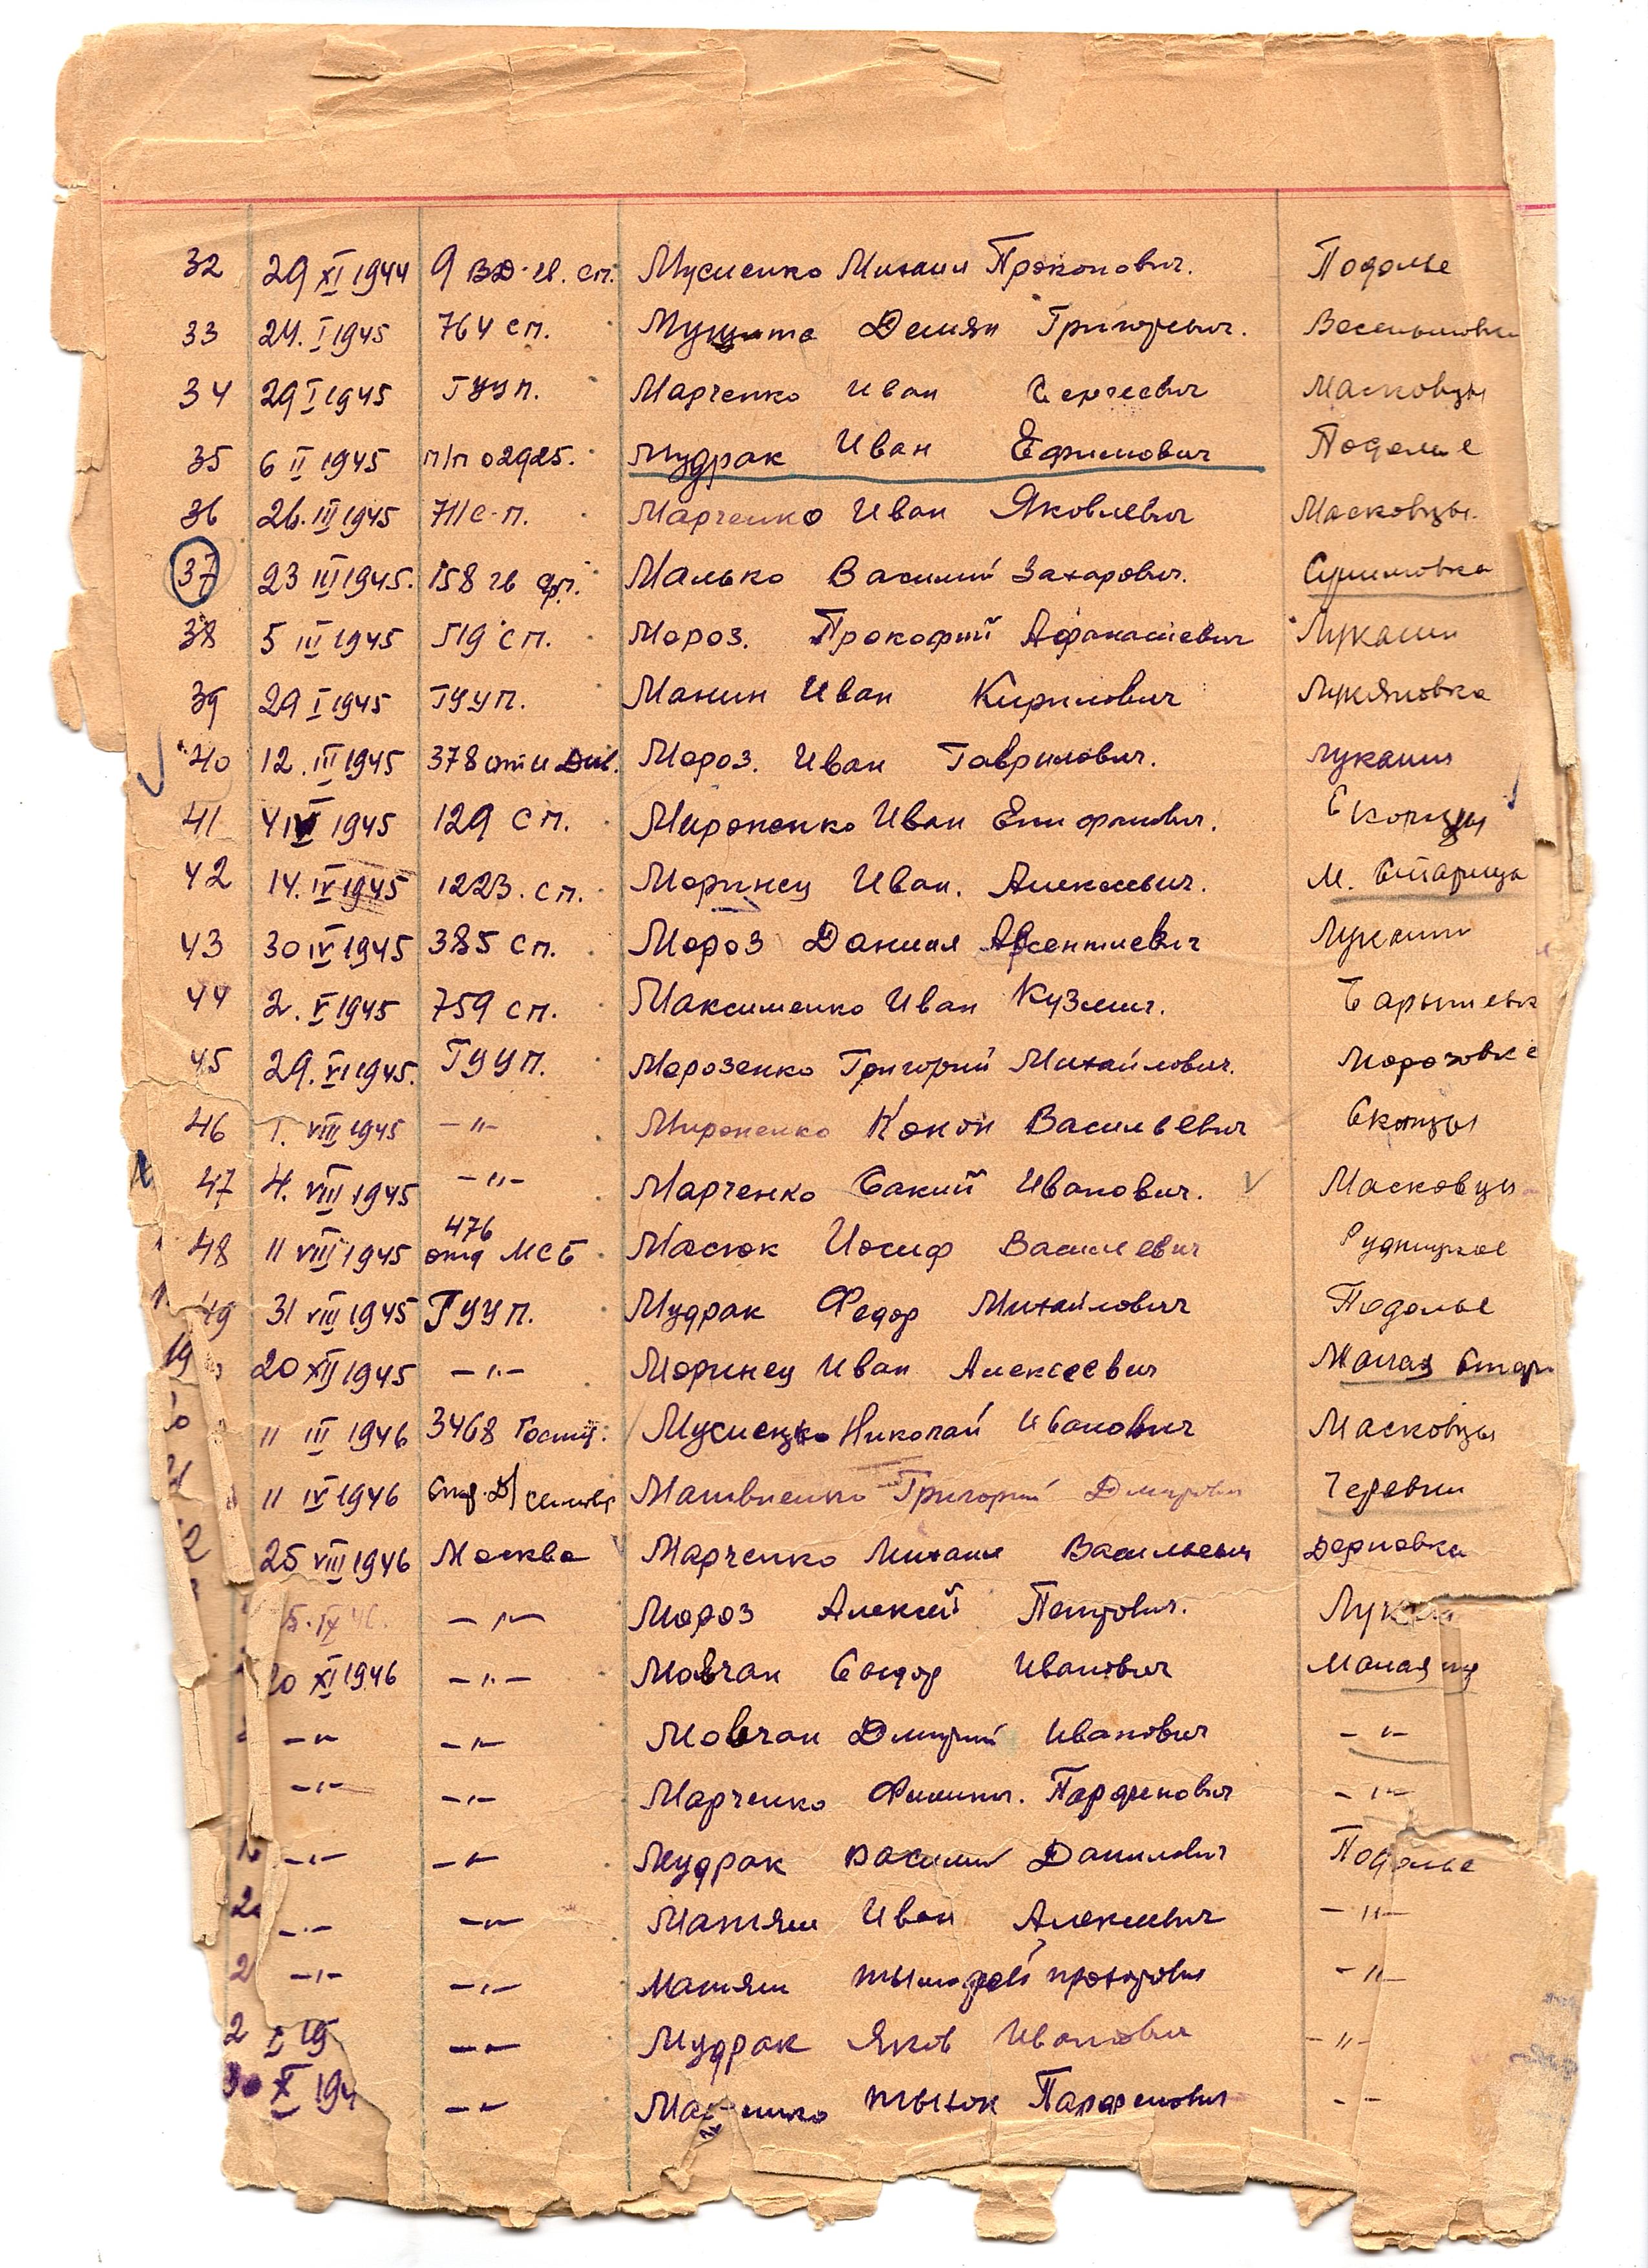 32 29 XI 1944 9 ВД. гв. сп. Мусиенко Михаил Прокопович. Подолье
33 24. I 1945 764 сп. Мущита Демян Григорьевич. Весельиновка
34 29 I 1945 ГУУП. Марченко Иван Сергеевич Масковцы
35 6 II 1945 п/п 02925. Мудрак Иван Ефимович Подолье
36 26. III 1945 711 с-п. Марченко Иван Яковлевич Масковцы.
37 23 III 1945. 158 гв ап. Малько Василий Захарович. Сулимовка
38 5 III 1945 519 сп. Мороз. Прокофий Афанасиевич Лукаши
39 29 I 1945 ГУУП. Манин Иван Кирилович Лукяновка
40 12. III 1945 378 Див. Мороз. Иван Гаврилович. Лукаши
41 4 IV 1945 129 сп. Мироненко Иван Епифанович. Скопцы
42 14. IV 1945 1223. сп. Моринец Иван. Алексеевич. М. Старица
43 30 IV 1945 385 сп. Мороз Даниил Арсентиевич Лукаши
44 2. V 1945 759 сп. Максименко Иван Кузмич. Барышевк
45 29. VI 1945. ГУУП. Морозенко Григорий Михайлович. Морозовке
46 1. VIII 1945 -"- Мироненко Конон Васильевич Скопцы
47 4. VIII 1945 -"- Марченко Сакий Иванович. Масковцы
476
48 11 VIII 1945 отд МСБ Масюк Иосиф Василевич Рудницкое
49 31 VIII 1945 ГУУП. Мудрак Федор Михайлович Подолье
20 XII 1945 -"- Моринец Иван Алексеевич Малая Стар
11 III 1946 3468 Госпит. Николай Иванович Масковцы
11 IV 1946 Матвиенко Григорий Дмитрович Черевки
25 VIII 1946 Москва Марченко Михаил Васильевич Дерновка
15. IX 46. -"- Мороз Алексей Петрович. Лукаши
20 XI 1946 -"- Мовчан Сидор Иванович Малая
-"- -"- Мовчан Дмитрий Иванович -"-
-"- -"- Марченко Филипп. Парфенович -"-
-"- -"- Мудрак Василий Данилович Подолье
-"- -"- Матяш Иван Алексеевич -"-
-"- -"- Матяш Тымофей -"-
2 I 19 -"- Мудрак Яков Иванович -"-
30 X 194 -"- Парфенович - -